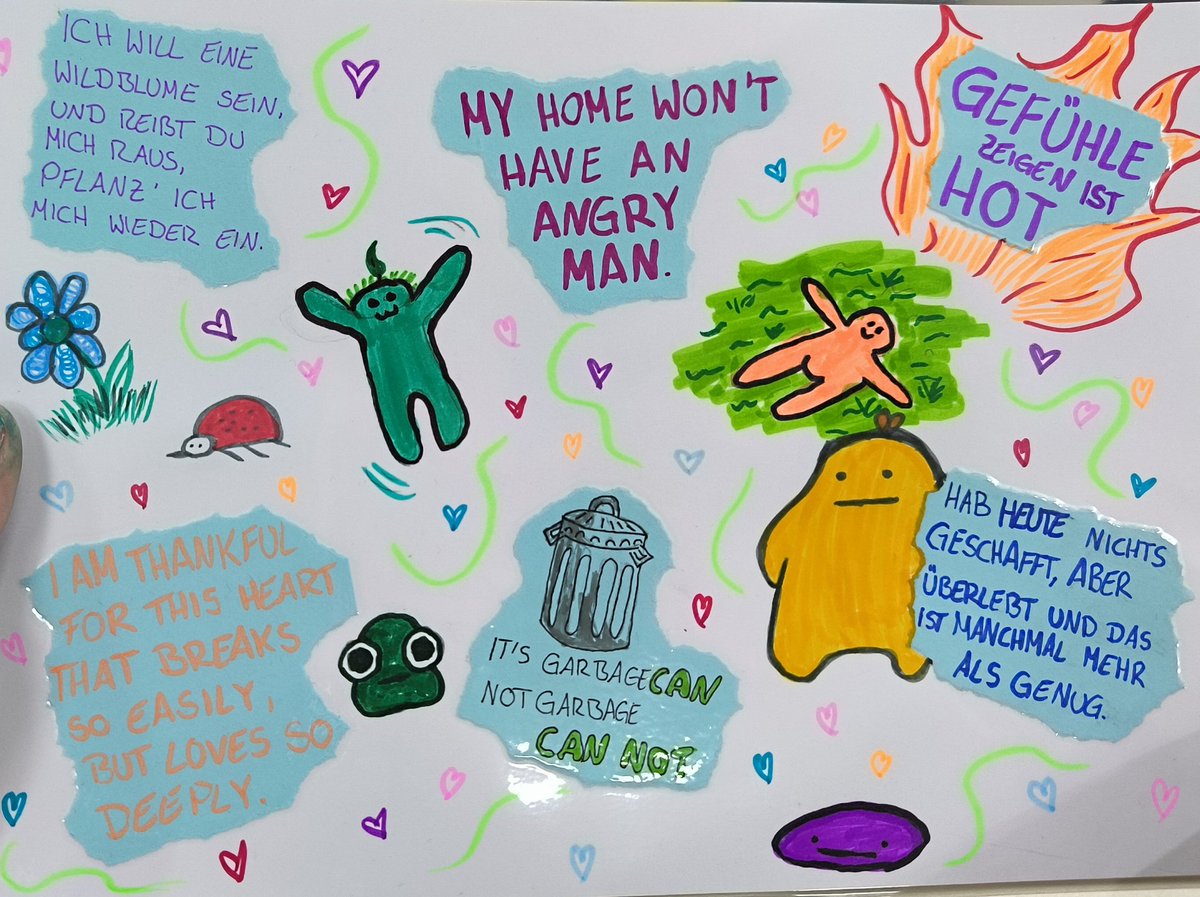 ICH WILL EINE
WILDBLUME SEIN,
UND REIBT DU
MICH RAUS,
PFLANZ' ICH
MICH WIEDER EIN.
MY HOME WON'T
HAVE AN
ANGRY
MAN.
GEFÜHLE
ZEIGEN IST
HOT
I AM THANKFUL
FOR THIS HEART
THAT BREAKS
SO EASILY,
BUT LOVES SO
DEEPLY.
IT'S GARBAGE CAN
NOT GARBAGE
CAN NOT
HAB HEUTE NICHTS
GESCHAFFT, ABER
ÜBERLEBT UND DAS
IST MANCHMAL MEHR
ALS GENUG.